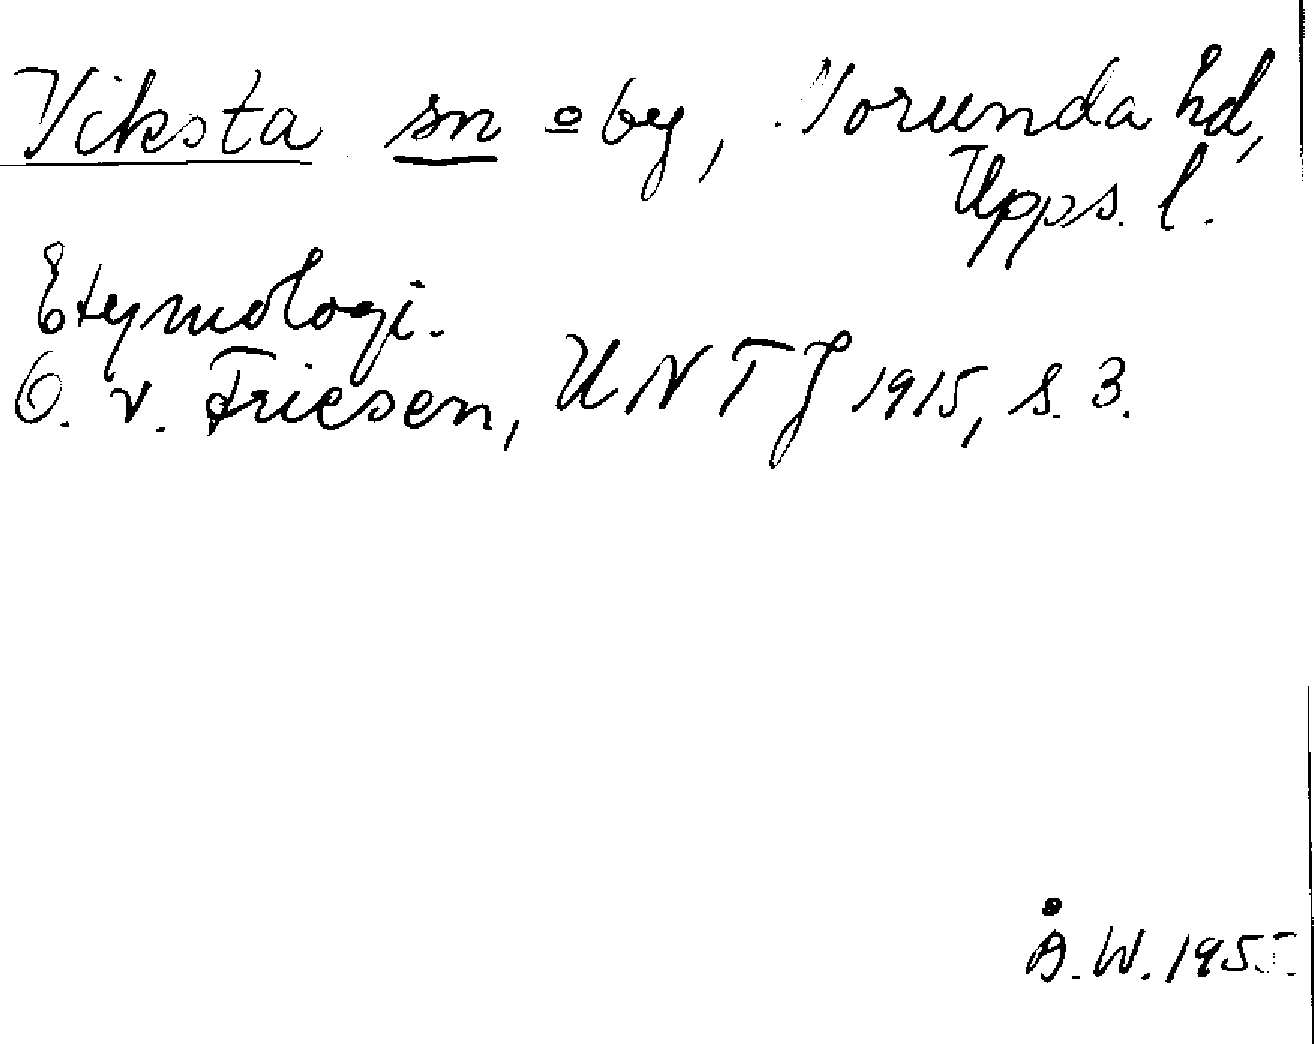 Viksta sn o by, Norunda hd,
Upps. l.
Etymologi.
O. v. Friesen, UNTJ 1915, s. 3.
Å. W. 1955.